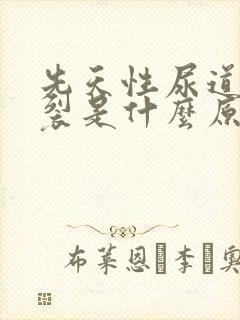 先天性尿道
裂是什麼原
布莱恩·李·奥